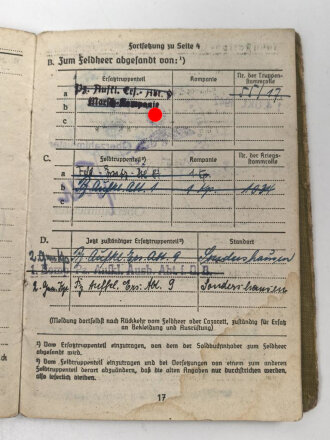 Fortsetzung zu Seite 4
B. Zum Feldheer abgesandt von:¹)
Ersatztruppenteil Kompanie Nr. der Truppen-
stammrolle
a Pz. Aufkl. Ers.-Abt. 9 55/17
b Marsch-Kompanie
c
C. Feldtruppenteil²) Kompanie Nr. der Kriegs-
stammrolle
a Feld 1
b Pz. Aufkl. Abt. 1 1 Kp. 1034
c
D. Jetzt zuständiger Ersatztruppenteil²) Standort
Pz. Aufkl. Ers. Abt. 9 Sondershausen
Pz. Aufkl. Ausb. Abt.
Pz. Aufkl. Ers. Abt. 9 Sondershausen
(Meldung dortselbst nach Rückkehr vom Feldheer oder Lazarett, zuständig für Ersatz
an Bekleidung und Ausrüstung)
¹) Vom Ersatztruppenteil einzutragen, von dem der Soldbuchinhaber zum Feldheer
abgesandt wird.
²) Vom Feldtruppenteil einzutragen und bei Versetzungen von einem zum anderen
Feldtruppenteil derart abzuändern, daß die alten Angaben nur durchstrichen werden,
also leserlich bleiben.
17